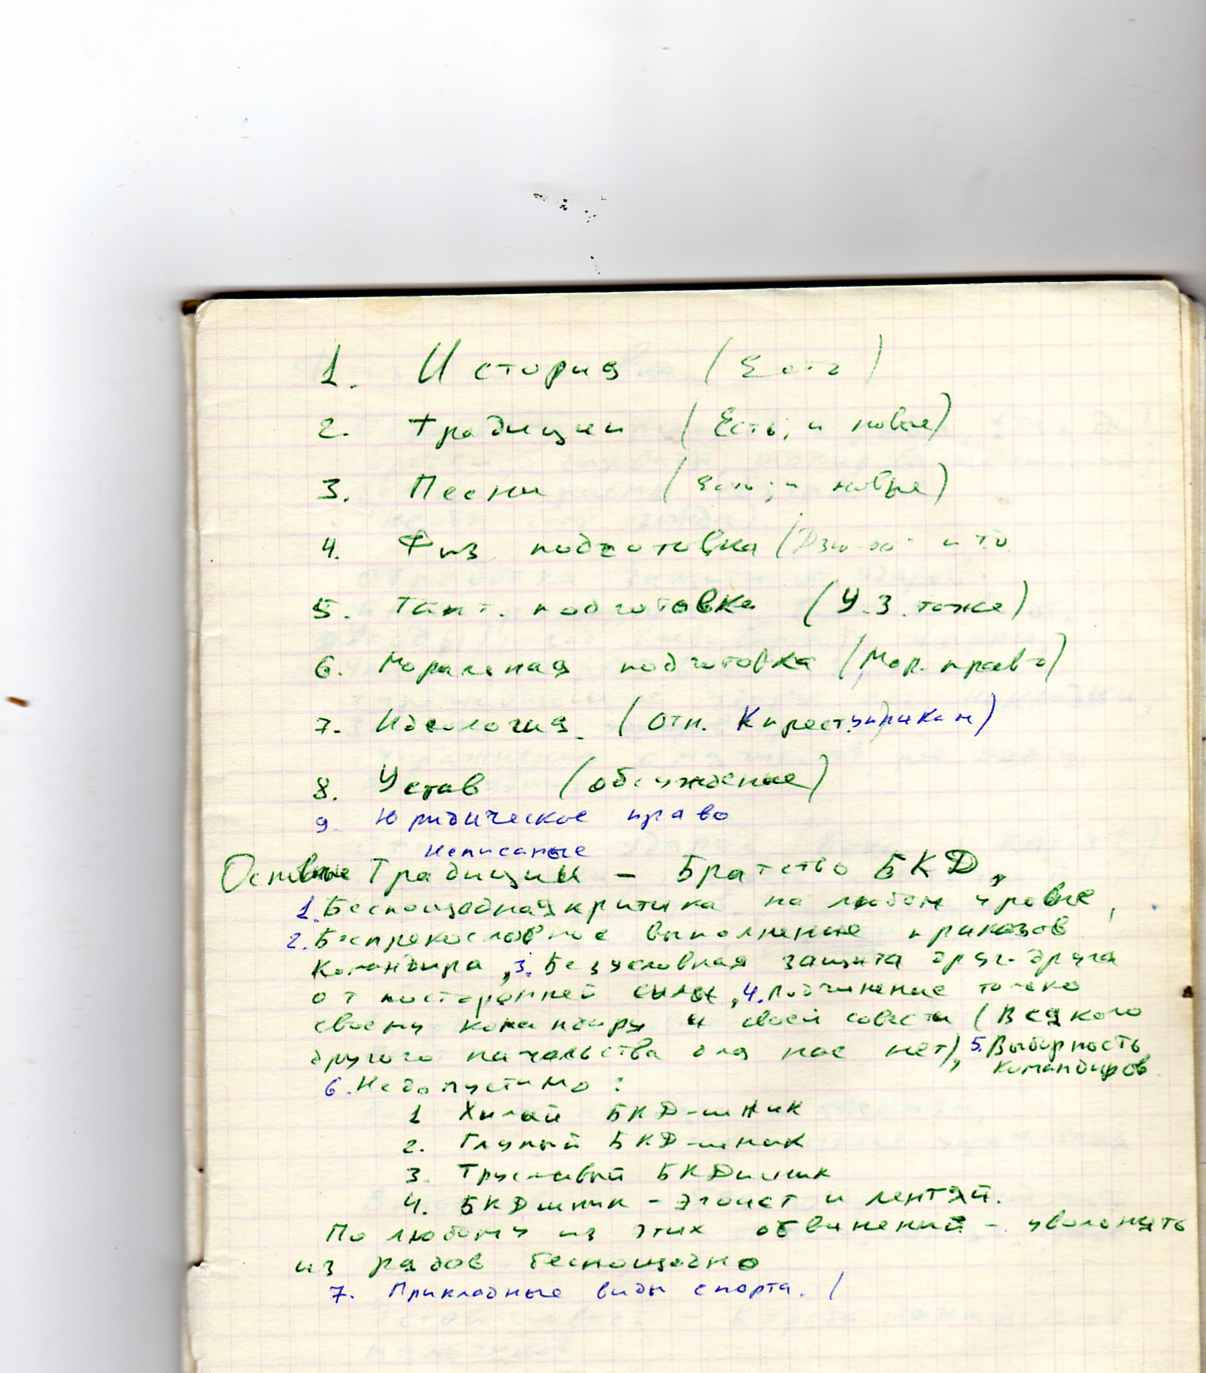 1. История (Есть)
2. Традиции (Есть, и новые)
3. Песни (Есть, и новые)
4. Физ подготовка (Дзю-до и
5. Такт. подготовка (У.З. тоже)
6. Моральная подготовка (Мор. право)
7. Идеология. (Отн.
8. Устав (обсуждение)
9. Юридическое право
Неписаные
Основные Традиции – Братство БКД,
1. Беспощадная критика на любом уровне,
2. Беспрекословное выполнение приказов
Командира, 3. Безусловная защита друг-друга
от посторонней силы, 4. Подчинение только
своему командиру и своей совести (Всякого
другого начальства для нас нет), 5. Выборность
командиров
6. Недопустимо:
1 Хилый БКД-шник
2. Глупый БКД-шник
3. Трусливый БКДшник
4. БКДшник – эгоист и лентяй.
По любому из этих обвинений – увольнять
из рядов беспощадно
7. Прикладные виды спорта. /